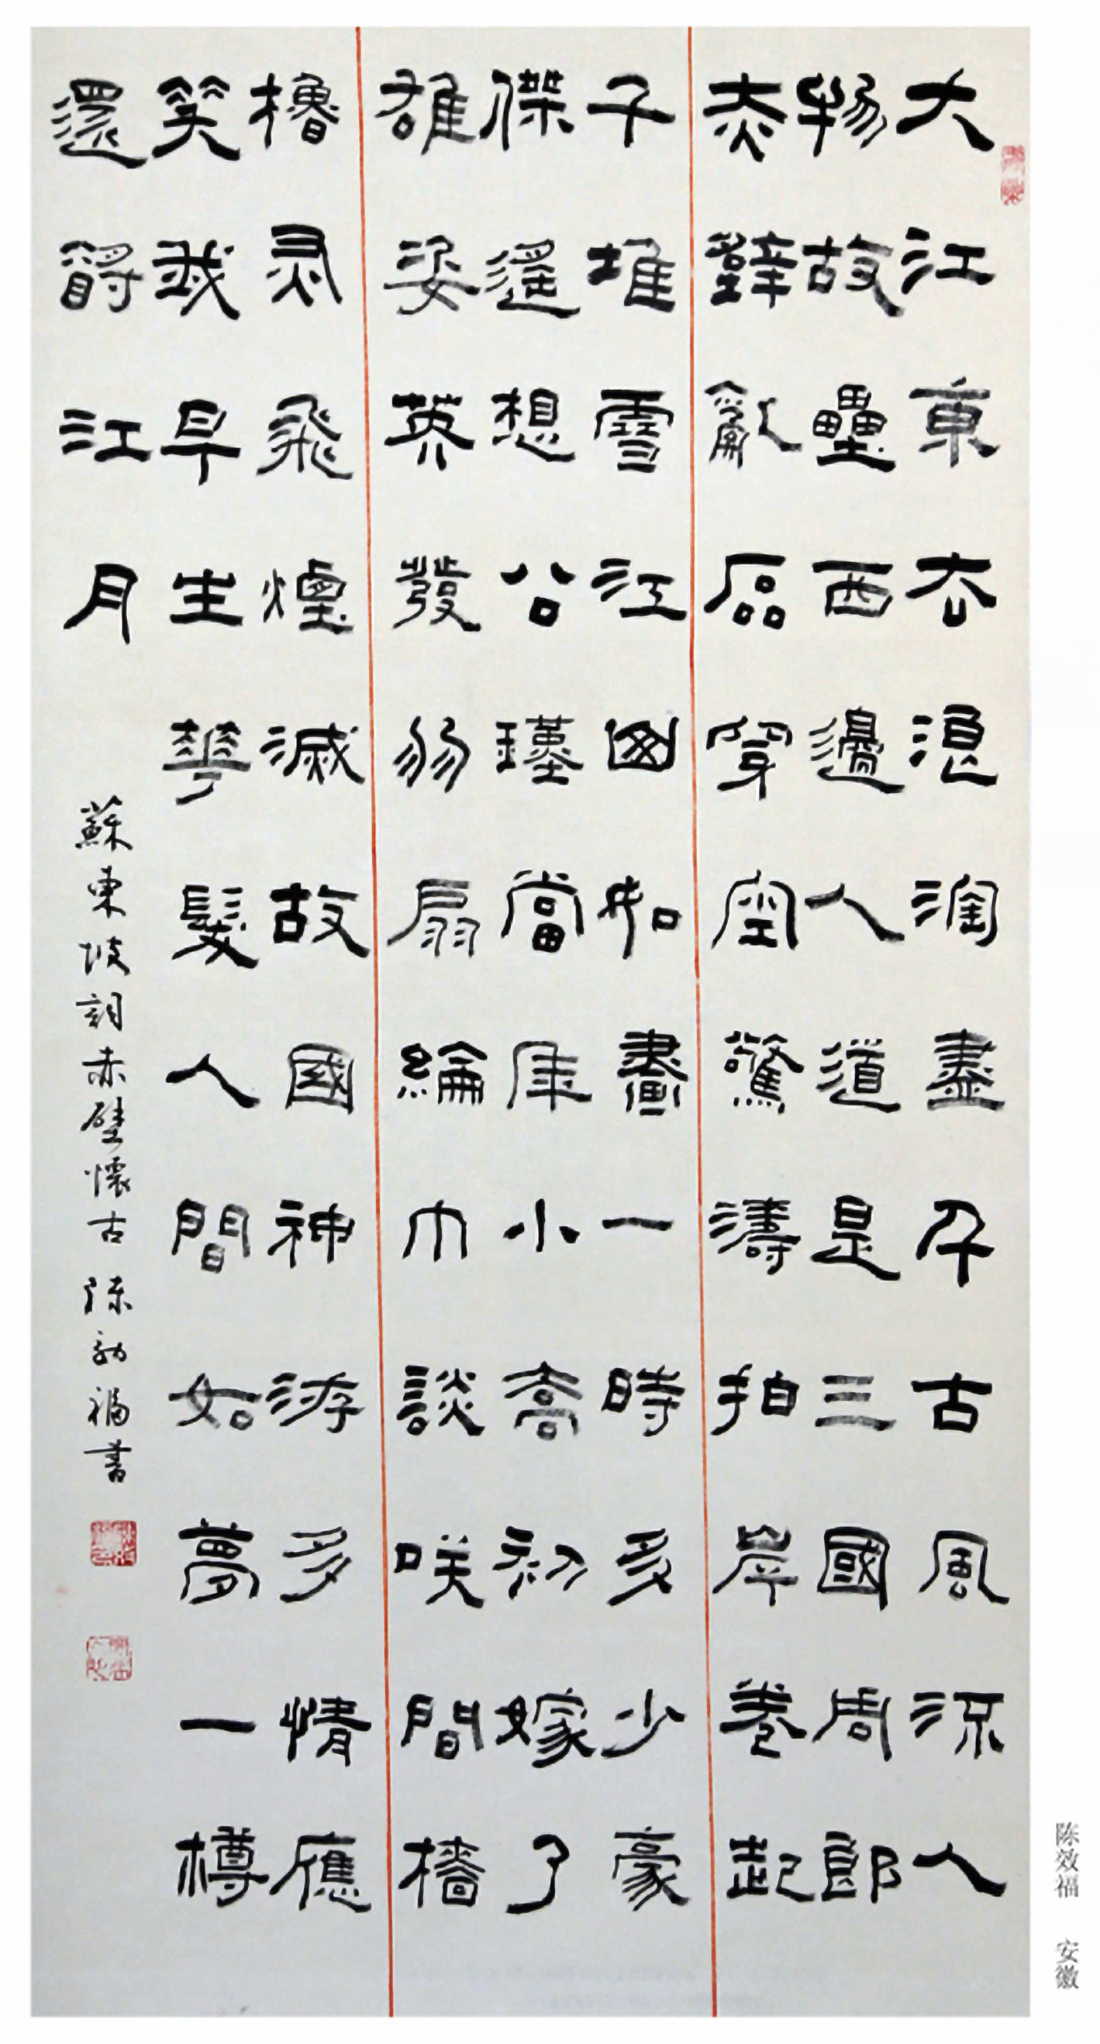 大江東去浪淘盡千古風流人
物故壘西邊人道是三國周郎
赤壁亂石穿空驚濤拍岸卷起
千堆雪江山如畫一時多少豪
傑遙想公瑾當年小喬初嫁了
雄姿英發羽扇綸巾談咲間檣
櫓灰飛煙滅故國神游多情應
笑我早生華髮人間如夢一樽
還酹江月
蘇東坡詞赤壁懷古 陳效福書
陈效福 安徽